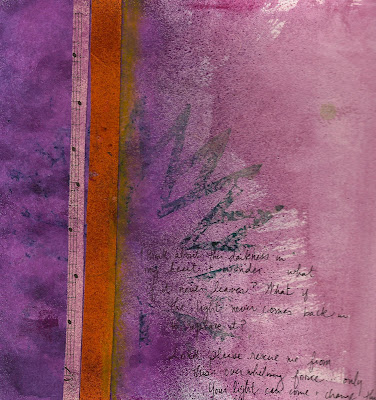 I think about this darkness in
my heart & wonder. what
if it never leaves? What if
the light never comes back in
to replace it?
Lord, please rescue me from
this overwhelming force. only
Your light can come & change the